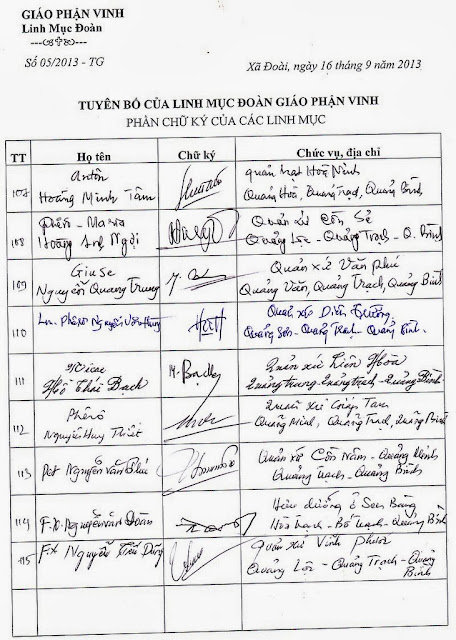 GIÁO PHẬN VINH
Linh Mục Đoàn
Số 05/2013 - TG
Xã Đoài, ngày 16 tháng 9 năm 2013
TUYÊN BỐ CỦA LINH MỤC ĐOÀN GIÁO PHẬN VINH
PHẦN CHỮ KÝ CỦA CÁC LINH MỤC
TT Họ tên Chữ ký Chức vụ, địa chỉ
107 Antôn quản hạt Hoà Ninh
Hoàng Minh Tâm Quảng Hoà, Quảng Trạch, Quảng Bình
108 Phêrô - Maria Quản xứ Cồn Sẻ
Hoàng Anh Ngợi Quảng Lộc - Quảng Trạch - Q. Bình
109 Giuse Quản xứ Văn Phú
Nguyễn Quang Trung Quảng Văn, Quảng Trạch, Quảng Bình
110 Lm. Phêrô Nguyễn Văn Quản xứ Diên Trường
Quảng Sơn - Quảng Trạch - Quảng Bình.
111 Quản xứ Liên Hòa
Hồ Thái Bạch M. Bạch Quảng Trung - Quảng Trạch - Quảng Bình
112 Phêrô Quản xứ Giáp Tam
Nguyễn Huy Thiết Quảng Minh, Quảng Trạch, Quảng Bình
113 Pet Nguyễn Văn Phú Quản xứ Cồn Nâm - Quảng Minh
Quảng Trạch - Quảng Bình
114 F.X. Nguyễn Văn Đoàn Hưu dưỡng ở Sen Bàng
Hòa Trạch - Bố Trạch - Quảng Bình
115 F.x Nguyễn Tiến Dũng Quản xứ Vĩnh Phước
Quảng Lộc - Quảng Trạch - Quảng
Bình